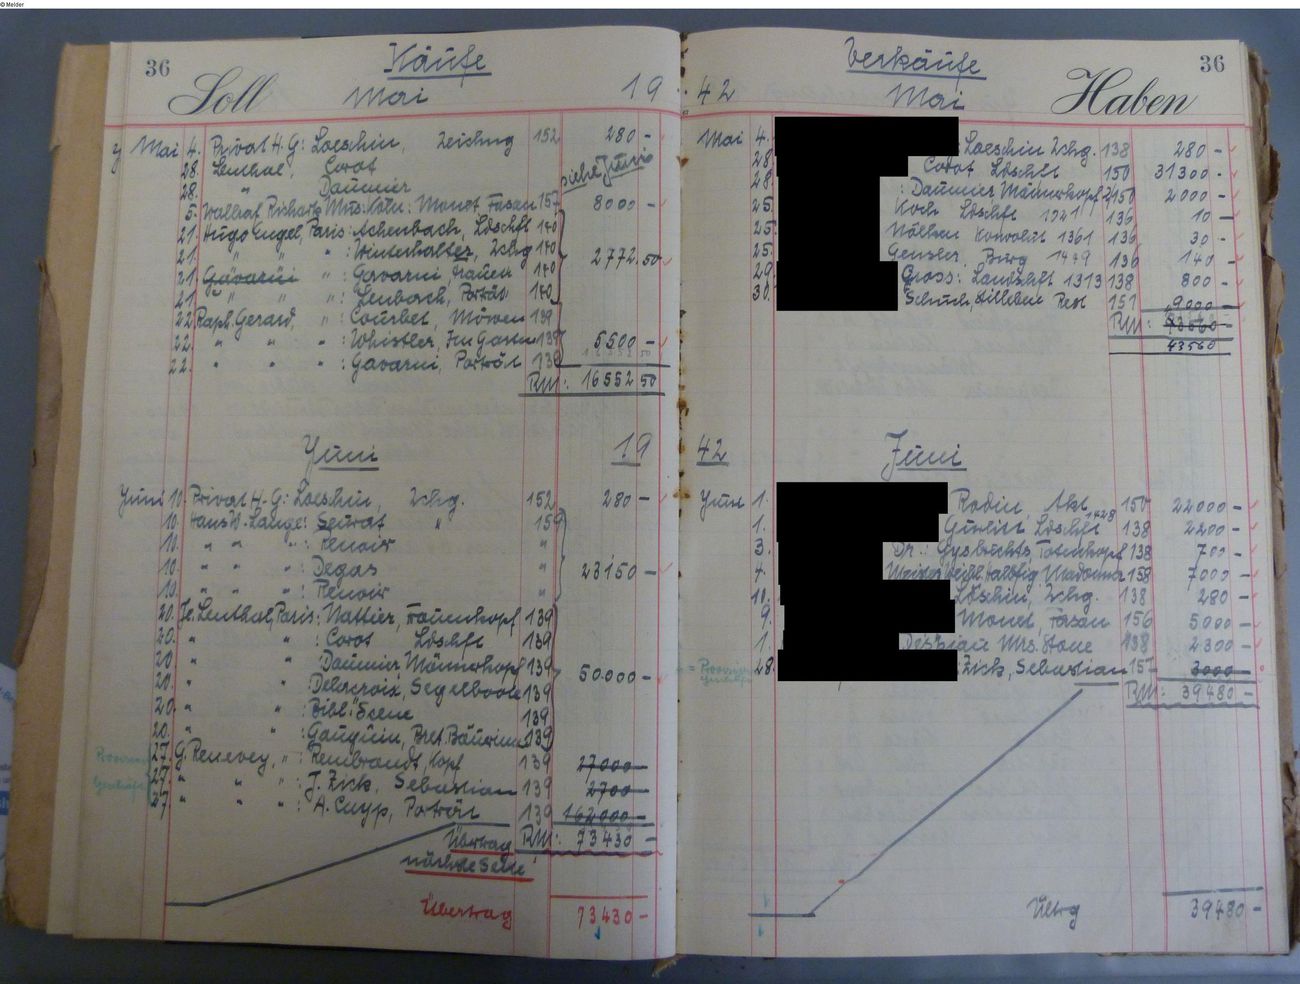 © Meider
36
Käufe
Soll
Mai
19
y Mai 4. Privat H.G: Loeschin, Zeichng 152 280 -
28. Lenthal, Corot siehe Juni
28. " Daumier
5. Wallraf Richartz Mus. Köln: Monet Fasan 157 8000 -
21. Hugo Engel, Paris: Achenbach, Ldschft 140
21. " " " : Winterhalter, Zchg 140 2772.50
21. Gavarni " : Gavarni, Frauen 140
21. " " " : Lenbach, Porträt 140
22. Raph. Gerard, " : Courbet, Möwen 139
22. " " " : Whistler, Im Garten 139 5500 -
22. " " " : Gavarni, Porträt 139
RM: 16552 50
Juni
19
Juni 10. Privat H-G: Loeschin, Zchg. 152 280 -
10. Hans W. Lange: Seurat " 159
10. " " " : Renoir "
10. " " " : Degas " 23150 -
10. " " " : Renoir "
20. Te. Lenthal, Paris: Nattier, Frauenkopf 139
20. " " : Corot Ldschft 139
20. " " : Daumier Männerkopf 139
20. " " : Delacroix, Segelboote 139 50.000 -
20. " " : Bibl. Scene 139
20. " " : Gauguin, Bret. Bäuerinnen 139
27. G. Renevey, " : Rembrandt, Kopf 139 27000 -
27. " " " : J. Zick, Sebastian 139 2700 -
27 " " " : A. Cuyp, Porträt 139 162000 -
Übertrag RM: 73430 -
nächste Seite
Übertrag 73430 -
Verkäufe
36
42
Mai
Haben
Mai 4. Loeschin Zchg. 138 280 -
28. Corot Ldschft 150 31300 -
28. : Daumier, Männerkopf 150 2000 -
25. Koch Ldschft 1021 136 10 -
25. Nölken Konvolut 1361 136 30 -
25. Gensler, Burg 1449 136 140 -
29. Gross: Landschft 1313 138 800 -
30. Schuch, Stilleben 151 9000 -
RM:
43560
42
Juni
Juni 1. Rodin, Akt 150 22000 -
1. Ldschft 1428 138 2200 -
3. Dr.: Gysbrechts Totenkopf 138 700 -
4. Madonna 158 7000 -
10. Löschin, Zchg. 138 280 -
9. Monet, Fasan 156 5000 -
1. Despiau Mrs. Stone 138 2300 -
28. : Zick, Sebastian 157 3000 -
RM: 39480 -
Übtrg 39480 -